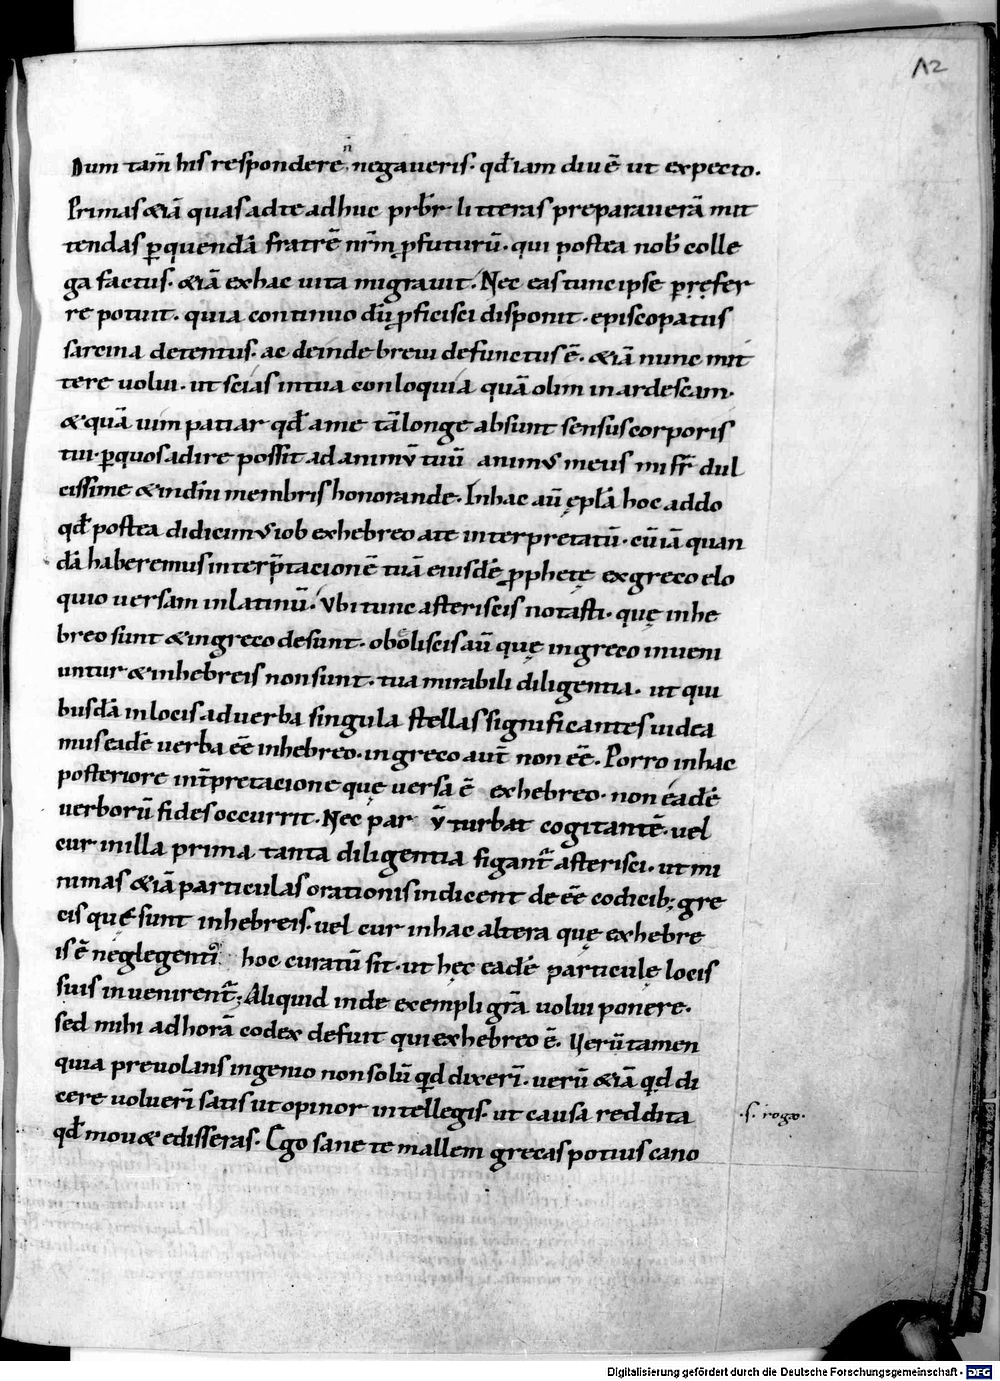 12
Dum tam̅ his respondere n̅ negaueris. qđ iam diu ē ut expecto.
Primas &iā quas ad te adhuc prb̄r litteras preparauerā mit
tendas ꝑ quendā fratrē nr̄m ꝓfuturū. qui postea nob̄ colle
ga factus. &iā ex hac uita migrauit. Nec eas tunc ipse p̱ręfer
re potuit. quia continuo dū ꝓficisci disponit. episcopatus
sarcina detentus. ac deinde breui defunctus ē. &iā nunc mit
tere uolui. ut scias in tua conloquia quā olim inardescam.
& quā uim patiar qđ a me tā longe absunt sensus corporis
tui. ꝑ quos adire possit ad animū tuū animus meus mi fr̄ dul
cissime & in dn̄i membris honorande. In hac aū ępl̄a hoc addo
qđ postea didicimus iob ex hebreo a te interpretatū. cū iā quan
dā haberemus interp̄tacionē tuā eiusdē ꝓphetę ex greco elo
quio uersam in latinū. Vbi tunc asteriscis notasti. quę in he
breo sunt & in greco desunt. oboliscis aū quę in greco inueni
untur & in hebreis non sunt. tua mirabili diligentia. ut qui
busdā in locis ad uerba singula stellas significantes uidea
mus eadē uerba eē in hebreo. in greco aut̄ non eē. Porro in hac
posteriore int̄pretacione quę uersa ē ex hebreo. non eadē
uerborū fides occurrit. Nec par v̄ turbat cogitantē. uel
cur in illa prima tanta diligentia figant᷑ asterisci. ut mi
nimas &iā particulas orationis indicent deeē codicib; gre
cis quę sunt in hebreis. uel cur in hac altera quę ex hebre
is ē neglegentiꝰ hoc curatū sit. ut hęc eadē particulę locis
suis inuenirent᷑; Aliquid inde exempli gr̄a uolui ponere.
sed mihi ad horā codex defuit qui ex hebreo ē. Uerūtamen
quia preuolans ingenio non solū qđ dixerī. uerū &iā qđ di
cere uoluerī satis ut opinor intellegis. ut causa reddita
.s. rogo.
qđ mou& edisseras. Ego sane te mallem grecas potius cano
Digitalisierung gefördert durch die Deutsche Forschungsgemeinschaft - DFG